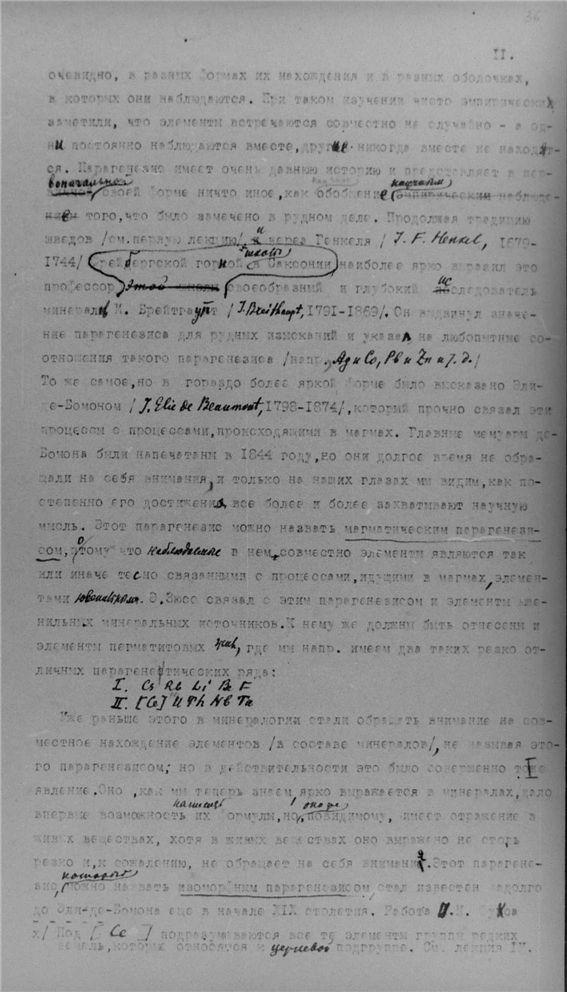 36
II.
очевидно, в разных формах их нахождения и в разных оболочках,
в которых они наблюдаются. При таком изучении чисто эмпирически
заметили, что элементы встречаются совместно не случайно - а од-
ни постоянно наблюдаются вместе, другие никогда вместе не находят-
ся. Парагенезис имеет очень давнюю историю и представляет в пер-
воначальной своей форме ничто иное, как обобщение научным наблюде-
нием того, что было замечено в рудном деле. Продолжая традицию
шведов /см. первую лекцию/ и через Генкеля / J. F. Henkel, 1679-
1744/ Фрейбергской горной школы в Саксонии наиболее ярко выразил это
профессор этой школы своеобразный и глубокий исследователь
минерал. И. Брейтгаупт / J. Breithaupt, 1791-1869/. Он выдвинул значе-
ние парагенезиса для рудных изысканий и указал на любопытные со-
отношения такого парагенезиса /напр. Ag и Co, Pb и Zn и т. д./
То же самое, но в гораздо более яркой форме было высказано Эли-
де-Бомоном / J. Elie de Beaumont, 1798-1874/, который прочно связал эти
процессы с процессами, происходящими в магмах. Главные мемуары де-
Бомона были напечатаны в 1844 году, но они долгое время не обра-
щали на себя внимания, и только на наших глазах мы видим, как по-
степенно его достижения все более и более захватывают научную
мысль. Этот парагенезис можно назвать магматическим парагенези-
сом, потому что наблюдаемые в нем совместно элементы являются так
или иначе тесно связанными с процессами, идущими в магмах, элемен-
тами ювенильными. Э. Зюсс связал с этим парагенезисом и элементы юве-
нильных минеральных источников. К нему же должны быть отнесены и
элементы пегматитовых жил, где мы напр. имеем два таких резко от-
личных парагенетических ряда:
I. Cs Rb Li Be F
II. [Ce] x/ U Th Nb Ta
Уже раньше этого в минералогии стали обращать внимание на сов-
местное нахождение элементов /в составе минералов/, не называя это-
го парагенезисом; но в действительности это было совершенно то же
явление. Оно, как мы теперь знаем ярко выражается в минералах, дало
впервые возможность написать их формулы, но, повидимому, оно же имеет отражение в
живых веществах, хотя в живых веществах оно выражено не столь
резко и, к сожалению, не обращает на себя внимания. Этот парагене-
зис, который можно назвать изоморфным парагенезисом, стал известен задолго
до Эли-де-Бомона еще в начале XIX столетия. Работа И. Н. Фукса
x/ Под [Ce] подразумеваются все те элементы группы редких
земель, которые относятся к цериевой подгруппе. См. лекция IV.